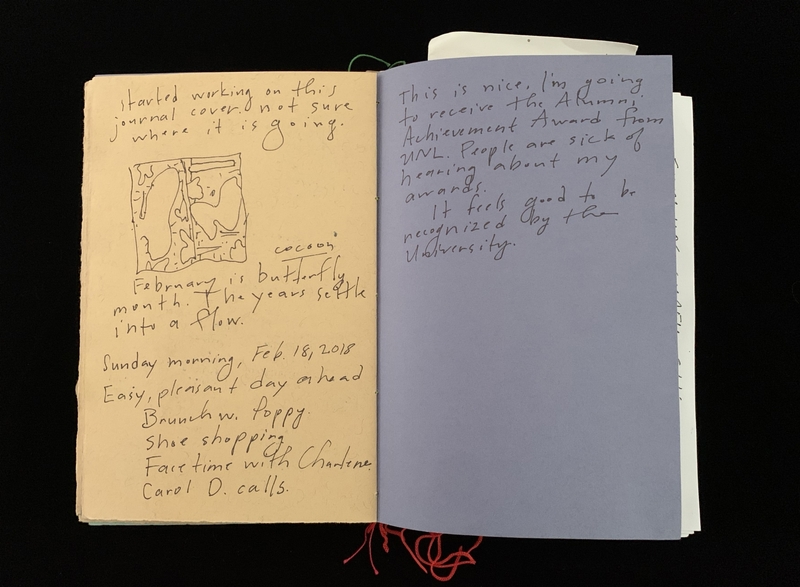 started working on this
journal cover. not sure
where it is going.
cocoon
February is butterfly
month. The years settle
into a flow.
Sunday morning, Feb. 18, 2018
Easy, pleasant day ahead
Brunch w. Poppy.
Shoe shopping
Facetime with Charlene.
Carol D. calls.
This is nice. I'm going
to receive the Alumni
Achievement Award from
UNL. People are sick of
hearing about my
awards.
It feels good to be
recognized by the
University.